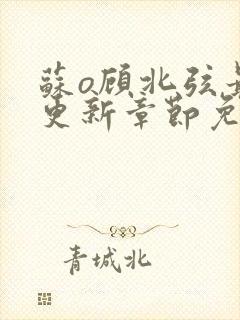 蘇o顾北弦
更新章節免
青城北